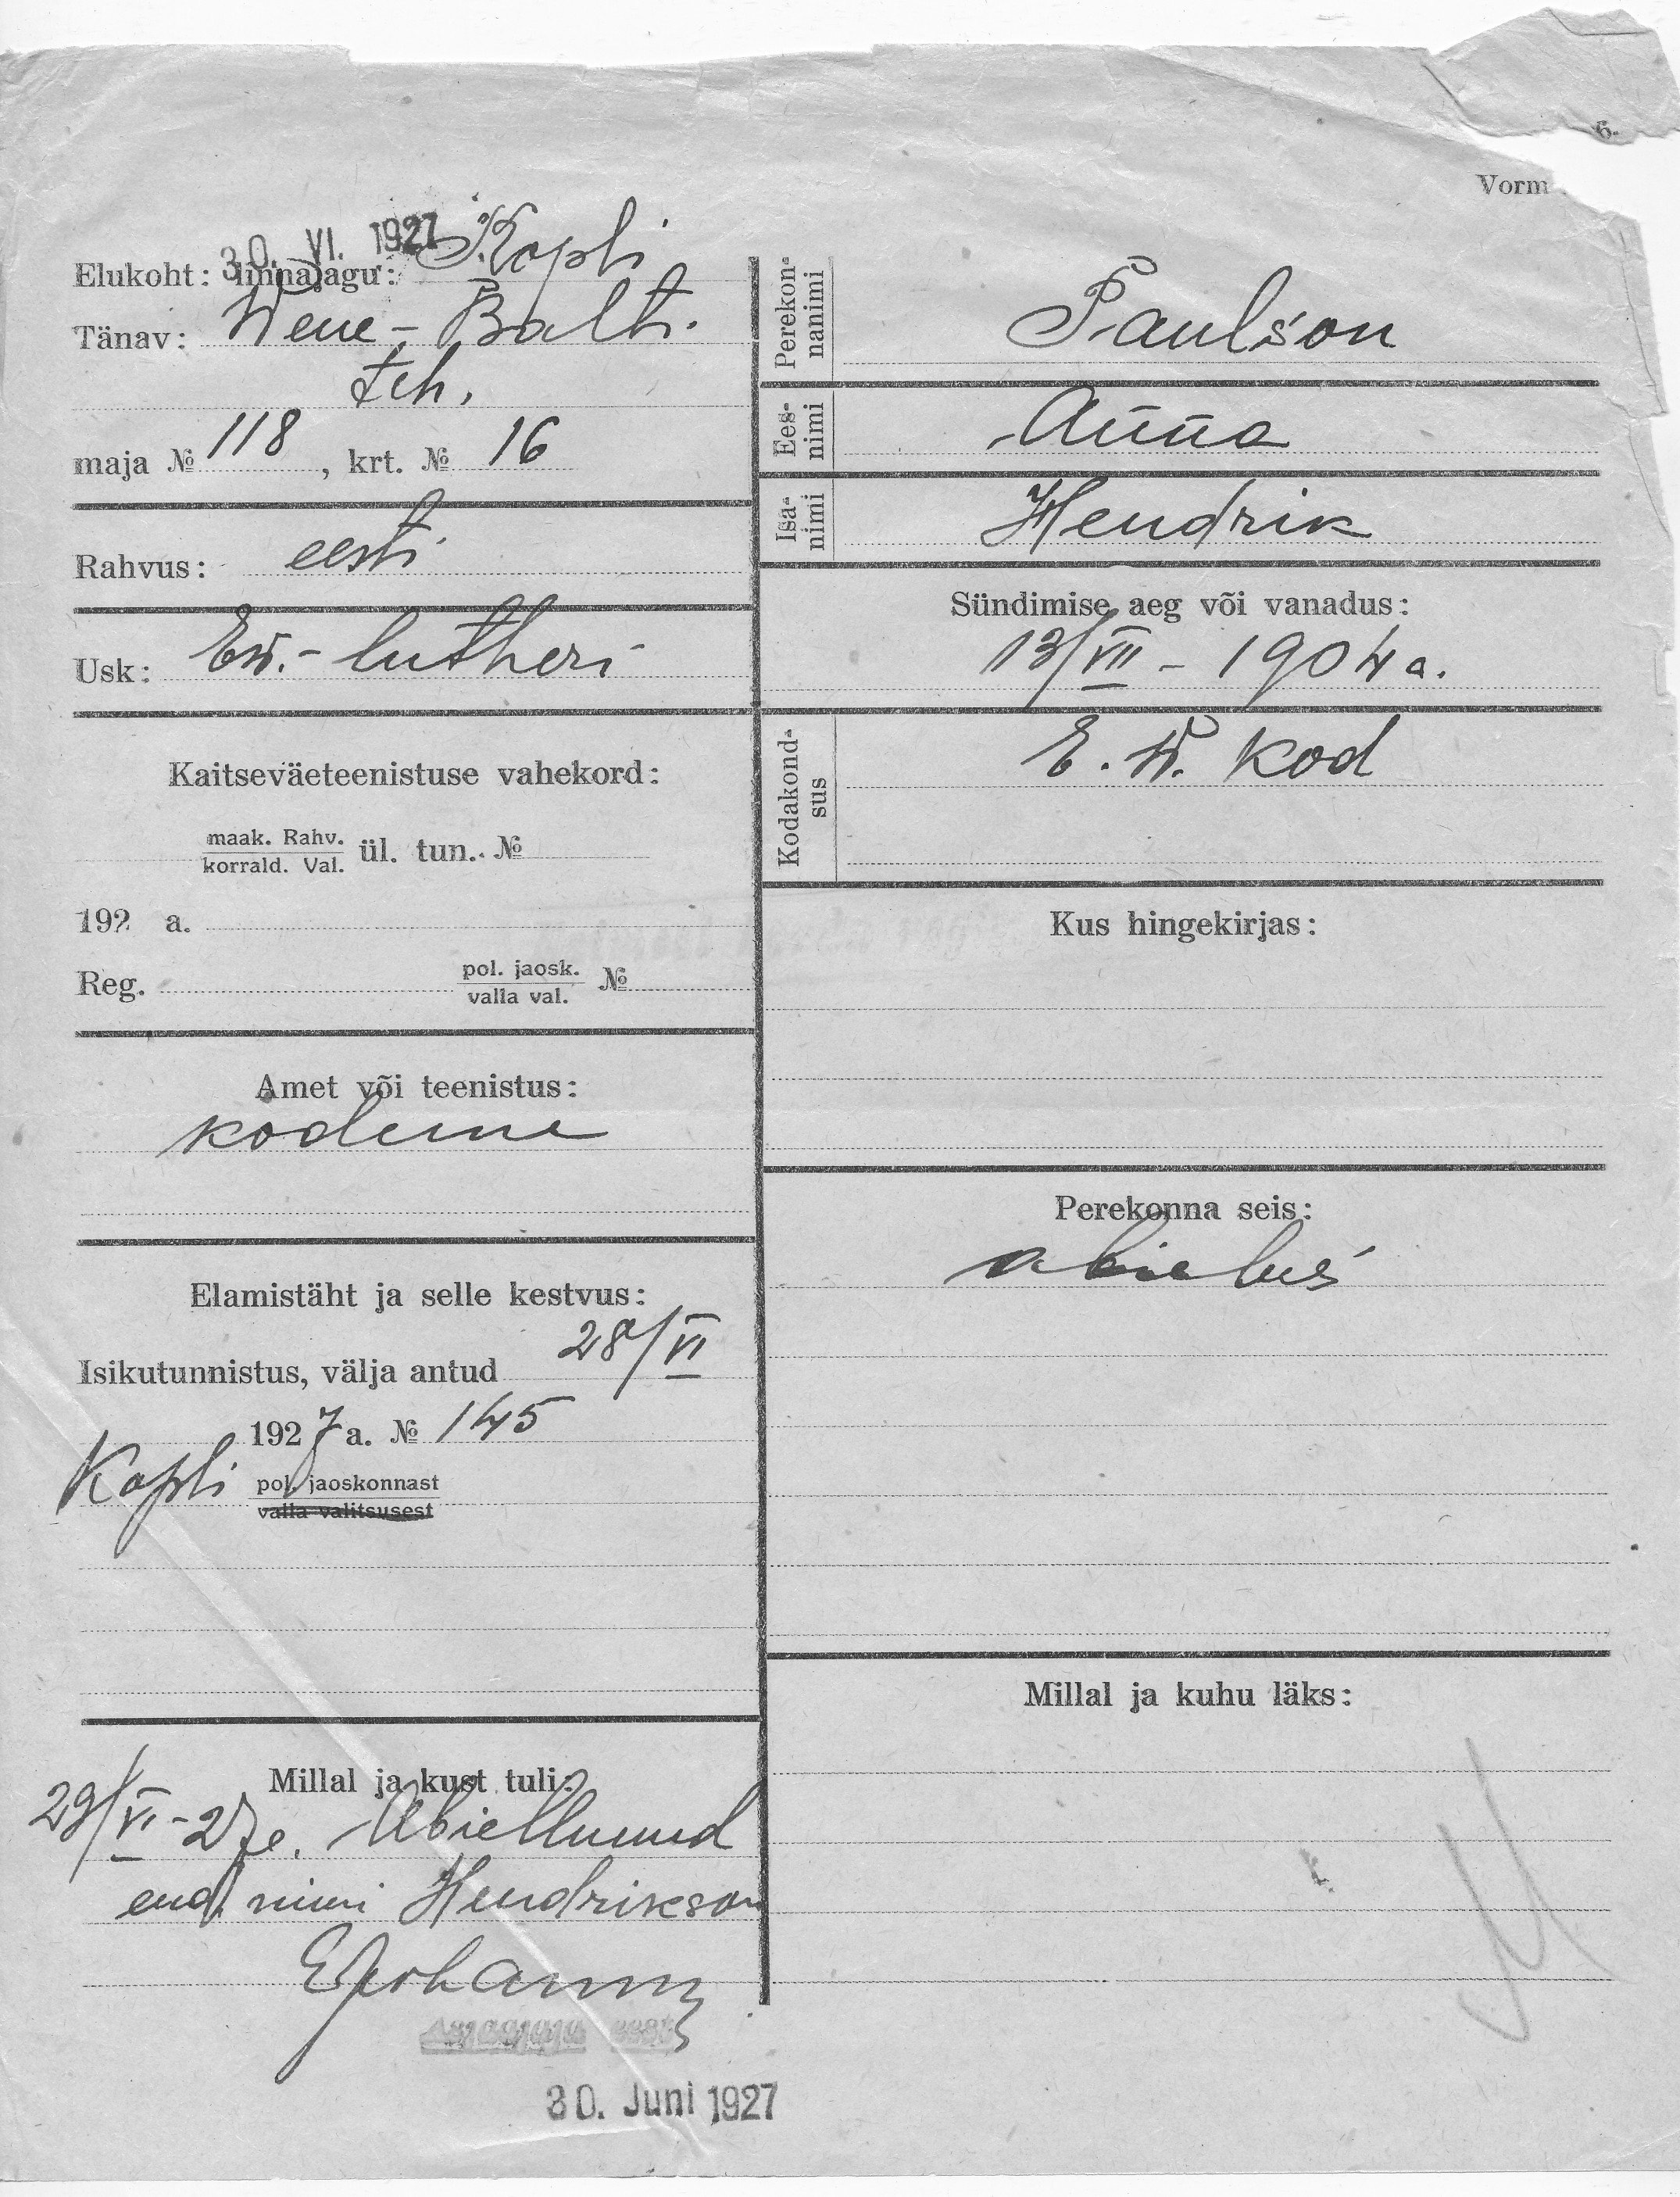 6.
Vorm
30. VI. 1927
Elukoht: linnajagu: Kopli
Tänav: Wene-Balti
teh.
maja № 118, krt. № 16
Rahvus: eesti
Usk: Ew.-lutheri
Kaitseväeteenistuse vahekord:
maak. Rahv.
korrald. Val. ül. tun. №
192 a.
Reg. pol. jaosk.
valla val. №
Amet või teenistus:
kodune
Elamistäht ja selle kestvus:
Isikutunnistus, välja antud 28/VI
1927 a. № 145
Kopli pol. jaoskonnast
valla valitsusest
Millal ja kust tuli:
29/VI-27 Abiellunud
end. nimi Hendrikson
Asjaajaja eest
30. Juni 1927
Perekonnanimi Paulson
Eesnimi Anna
Isanimi Hendrik
Sündimise aeg või vanadus:
13/VII - 1904 a.
Kodakondsus E. W. kod
Kus hingekirjas:
Perekonna seis:
abielus
Millal ja kuhu läks: